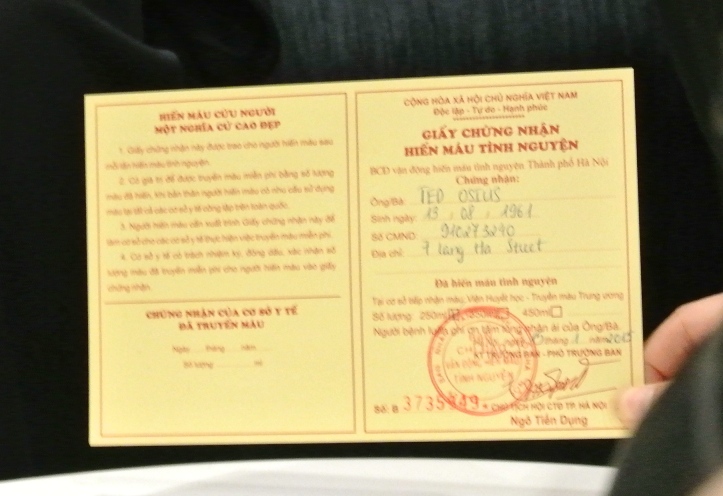 HIẾN MÁU CỨU NGƯỜI
MỘT NGHĨA CỬ CAO ĐẸP
1. Giấy chứng nhận này được trao cho người hiến máu sau
mỗi lần hiến máu tình nguyện.
2. Có giá trị để được truyền máu miễn phí bằng số lượng
máu đã hiến, khi bản thân người hiến máu có nhu cầu sử dụng
máu tại tất cả các cơ sở y tế công lập trên toàn quốc.
3. Người hiến máu cần xuất trình Giấy chứng nhận này để
làm cơ sở cho các cơ sở y tế thực hiện việc truyền máu miễn phí.
4. Cơ sở y tế có trách nhiệm ký, đóng dấu, xác nhận số
lượng máu đã truyền miễn phí cho người hiến máu vào giấy
chứng nhận.
CHỨNG NHẬN CỦA CƠ SỞ Y TẾ
ĐÃ TRUYỀN MÁU
Ngày tháng năm
Số lượng ml
CỘNG HÒA XÃ HỘI CHỦ NGHĨA VIỆT NAM
Độc lập - Tự do - Hạnh phúc
GIẤY CHỨNG NHẬN
HIẾN MÁU TÌNH NGUYỆN
BCĐ vận động hiến máu tình nguyện Thành phố Hà Nội
Chứng nhận:
Ông/Bà: TED OSIUS
Sinh ngày: 13, 08, 1961
Số CMND: 910273290
Địa chỉ: 7 Lang Ha Street
Đã hiến máu tình nguyện
Tại cơ sở tiếp nhận máu: Viện Huyết học - Truyền máu Trung ương
Số lượng: 250ml 450ml
Người bệnh luôn ghi ơn tấm lòng nhân ái của Ông/Bà.
tháng 1 năm 2015
KT TRƯỞNG BAN - PHÓ TRƯỞNG BAN
TÌNH NGUYỆN
Số: B 3735849
CHỦ TỊCH HỘI CTĐ TP. HÀ NỘI
Ngô Tiến Dụng